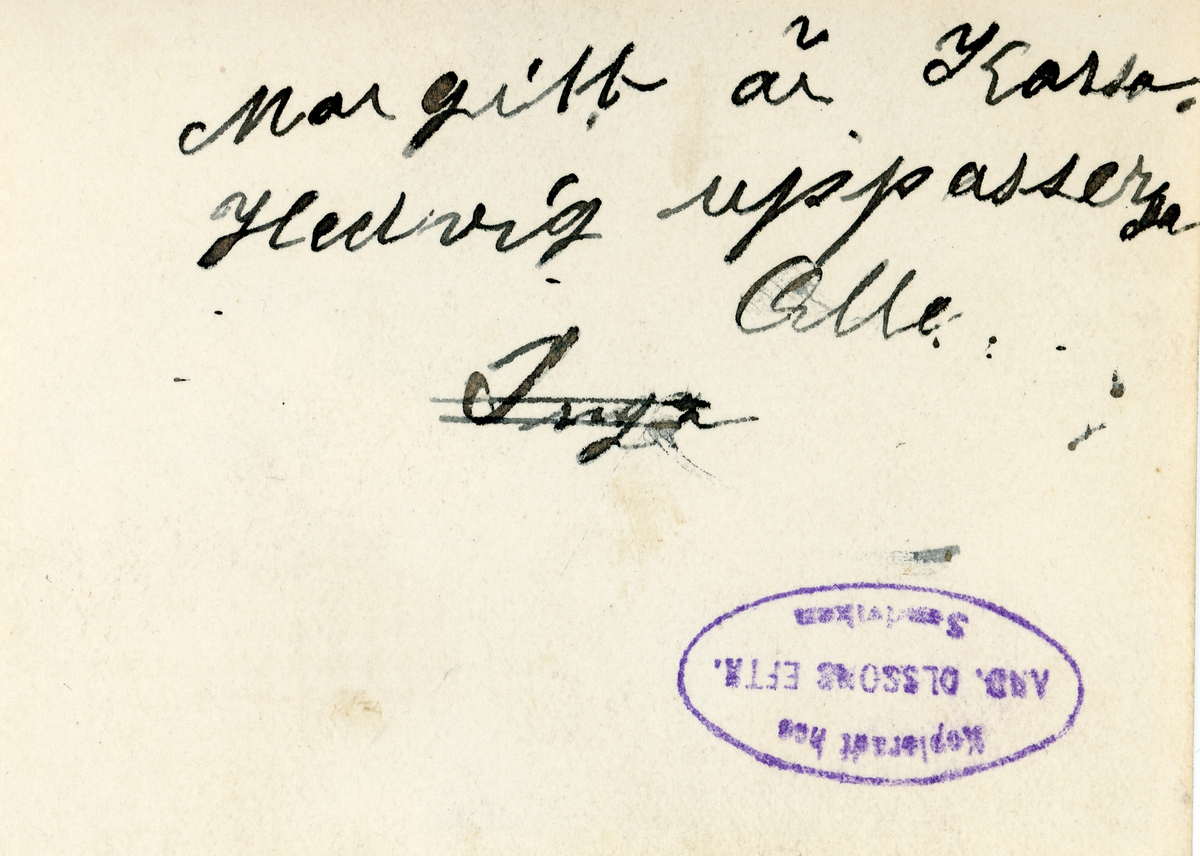 Margitt är Kassa.
Hedvig uppasserska
Olle.
Inga
Kopieradt hos
AND. OLSSONS EFTR.
Sandviken